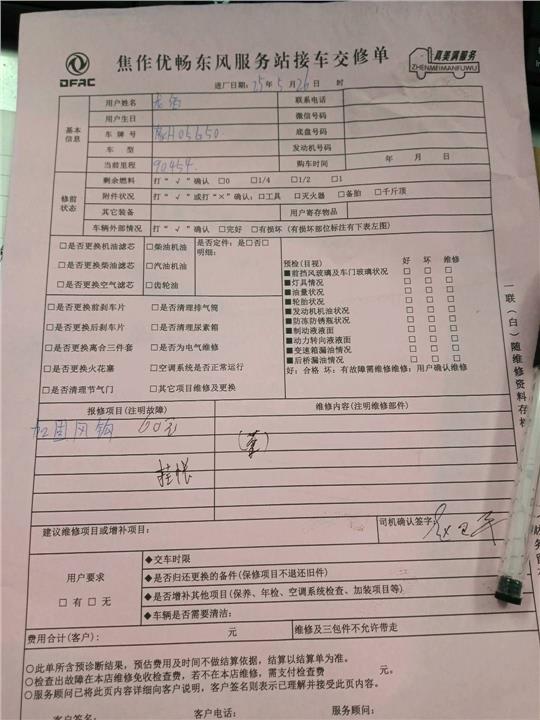 DFAC
焦作优畅东风服务站接车交修单
真美满服务
ZHENMEIMANFUWU
进厂日期：25年5月26日 时
基本信息
用户姓名 联系电话
用户生日 微信号码
车牌号 H05650 底盘号码
车型 发动机号码
当前里程 90454 购车时间 年 月 日
修前状态
剩余燃料 打“√”确认 □0 □1/4 □1/2 □1
附件状况 打“√”或打“×”确认：□工具 □灭火器 □备胎 □千斤顶
其它装备 用户寄存物品
车辆外部情况 打“√”确认 □完好 □有损坏（有损坏部位标注有下表左图）
□是否更换机油滤芯 □柴油机油 是否定件：是□否□
□是否更换柴油滤芯 □汽油机油 明细：
□是否更换空气滤芯 □齿轮油
□是否更换前刹车片 □是否清理排气筒
□是否更换后刹车片 □是否清理尿素箱
□是否更换离合三件套 □是否为电气维修
□是否更换火花塞 □空调系统是否正常运行
□是否清理节气门 □其它项目维修及更换
预检（目视） 好 坏 维修
■前挡风玻璃及车门玻璃状况 □ □ □
■灯具情况 □ □ □
■油量状况 □ □ □
■轮胎状况 □ □ □
■发动机机油液面 □ □ □
■防冻防锈瓶状况 □ □ □
■制动液液面 □ □ □
■动力转向液液面 □ □ □
■变速箱漏油情况 □ □ □
■后桥漏油情况 □ □ □
好：合格 坏：有故障需维修维修：用户确认维修
一联（白）随维修资料存档
报修项目（注明故障） 维修内容（注明维修部件）
加固风钩 60元
挂帐
建议维修项目或增补项目：
司机确认签字：
用户要求
□有 □无
◆交车时限
◆是否归还更换的备件（保修项目不退还旧件）
◆是否增补其他项目（保养、年检、空调系统检查、加装项目等）
◆车辆是否需要清洁：
费用合计（客户）： 元 维修及三包件不允许带走
○此单所含预诊断结果，预估费用及时间不做结算依据，结算以结算单为准。
○检查出故障在本店维修免收检查费，若不在本店维修，需支付检查费 元。
○服务顾问已将此页内容详细向客户说明，客户签名则表示已理解并接受此页内容。
客户签名： 客户电话： 服务顾问：